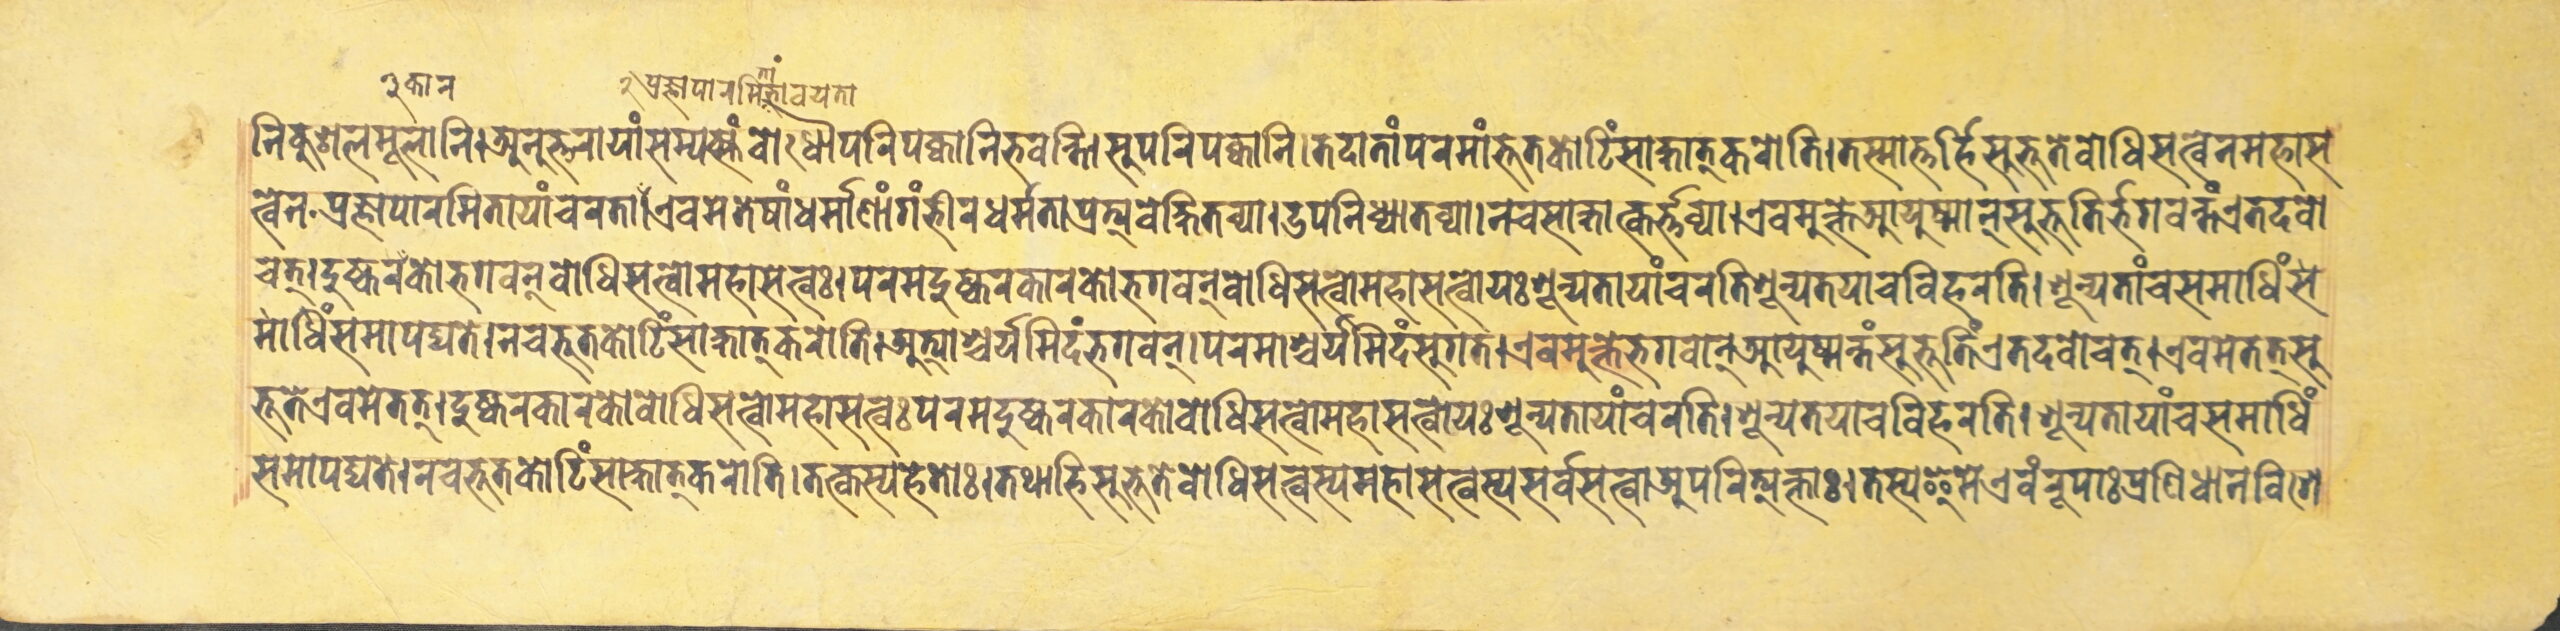 ३कान २प्रज्ञापारमितांभावयता
निकुशलमूलानि।अनुत्तरायांसम्यक्संबोधौपरिपक्वानिभवन्ति।सुपरिपक्वानि।तदातांपरमांभूतकोटिंसाक्षात्करोति।तस्मात्तर्हिसुभूतेबोधिसत्वेनमहास
त्वेन॰प्रज्ञापारमितायांचरता।एवमेतेषांधर्माणांगंभीरधर्मताप्रत्यवेक्षितव्या।उपनिध्यातव्या।नचसाक्षात्कर्त्तव्या।एवमुक्तेआयुष्मान्सुभूतिर्भगवन्तंएतदवो
चत्।दुष्करकोभगवन्बोधिसत्वोमहासत्वः।परमदुष्करकारकोभगवन्बोधिसत्वोमहासत्वोयःशून्यतायांचरतिशून्यतयाचविहरति।शून्यतांचसमाधिंस
माधिंसमापद्यते।नचभूतकोटिंसाक्षात्करोति।अत्याश्चर्यमिदंभगवन्।परमाश्चर्यमिदंसुगत।एवमुक्तेभगवान्आयुष्मन्तंसुभूतिंएतदवोचत्।एवमेतत्सु
भूतेएवमेतत्।दुष्करकारकोबोधिसत्वोमहासत्वःपरमदुष्करकारकोबोधिसत्वोमहासत्वोयःशून्यतायांचरति।शून्यतयाचविहरति।शून्यतायांचसमाधिं
समापद्यते।नचभूतकोटिंसाक्षात्करोति।तत्कस्यहेतोः।तथाहिसुभूतेबोधिसत्वस्यमहासत्वस्यसर्वसत्वाअपरित्यक्ताः।तस्यइमेएवंरूपाःप्रणिधानविशे